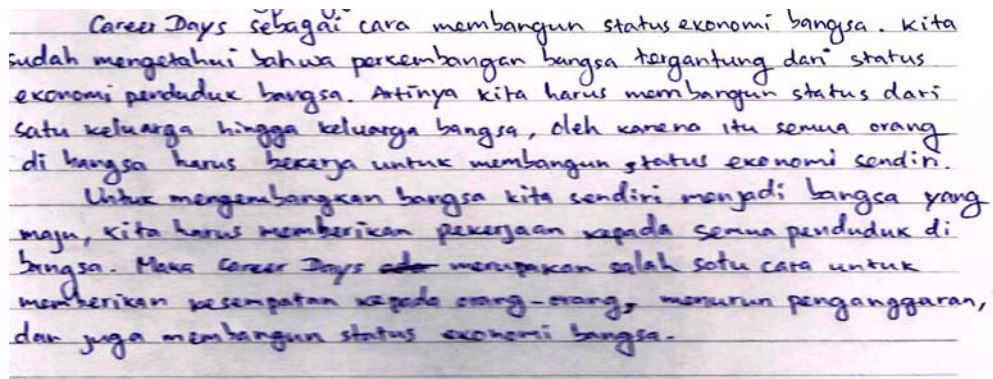 Career Days sebagai cara membangun status ekonomi bangsa. Kita
sudah mengetahui bahwa perkembangan bangsa tergantung dari status
ekonomi penduduk bangsa. Artinya kita harus membangun status dari
satu keluarga hingga keluarga bangsa, oleh karena itu semua orang
di bangsa harus bekerja untuk membangun status ekonomi sendiri.
Untuk mengembangkan bangsa kita sendiri menjadi bangsa yang
maju, kita harus memberikan pekerjaan kepada semua penduduk di
bangsa. Maka Career Days merupakan salah satu cara untuk
memberikan kesempatan kepada orang-orang, menurun penganggaran,
dan juga membangun status ekonomi bangsa.